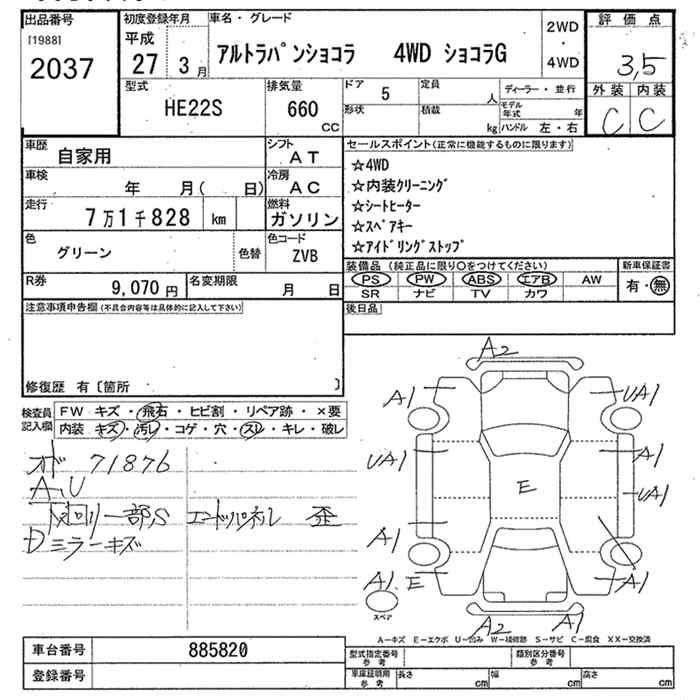 出品番号
[1988]
2037
初度登録年月
平成
27 3 月
車名・グレード
アルトラパンショコラ 4WD ショコラG
2WD
・
4WD
評価点
3,5
外装 内装
C C
型式
HE22S
排気量
660
CC
ドア 5
形状
定員
人
積載
kg
ディーラー・並行
モデル年式 年
ハンドル 左・右
車歴 自家用
シフト AT
車検 年 月( 日)
冷房 AC
走行 7万1千828 km
燃料 ガソリン
色 グリーン
色替
色コード ZVB
R券 9,070 円
名変期限 月 日
セールスポイント(正常に機能するものに限ります)
☆4WD
☆内装クリーニング
☆シートヒーター
☆スペアキー
☆アイドリングストップ
装備品 (純正品に限り○をつけてください)
新車保証書
PS PW ABS エアB AW
有・無
SR ナビ TV カワ
注意事項申告欄(不具合内容等は具体的に記入して下さい)
後日品
修復歴 有〔箇所 〕
検査員記入欄
FW キズ・飛石・ヒビ割・リペア跡・×要
内装 キズ・汚レ・コゲ・穴・スレ・キレ・破レ
オド 71876
A,U
下廻リ一部S エンドパネル 歪
ミラーキズ
A2
A1
UA1
UA1
A1
E
UA1
A1
A1. E
A1
スペア
A2
A1
A—キズ E—エクボ U—凹み W—補修跡 S—サビ C—腐食 XX—交換済
車台番号 885820
登録番号
型式指定番号 参考
類別区分番号 参考
車庫証明用 参考
長さ cm
幅 cm
高さ cm